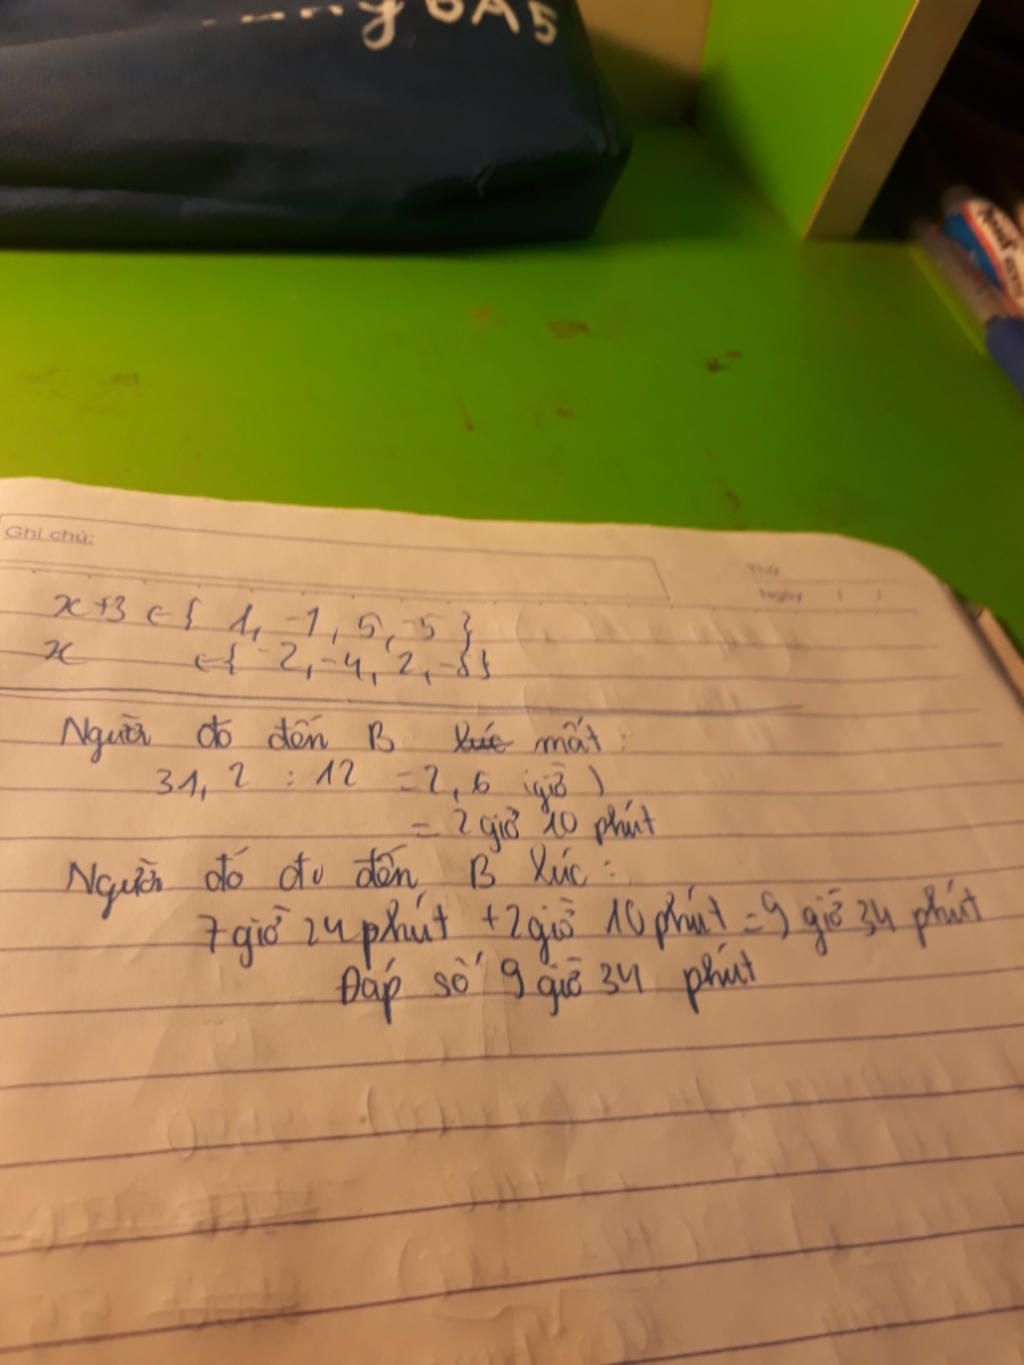 y 6A5
Ghi chú:
Thứ
Ngày / /
x+3 ∈ { 1, -1, 5, -5 }
x ∈ { -2, -4, 2, -8}
Người đó đến B mất:
31,2 : 12 = 2,6 (giờ)
= 2 giờ 10 phút
Người đó đi đến B lúc:
7 giờ 24 phút + 2 giờ 10 phút = 9 giờ 34 phút
Đáp số 9 giờ 34 phút